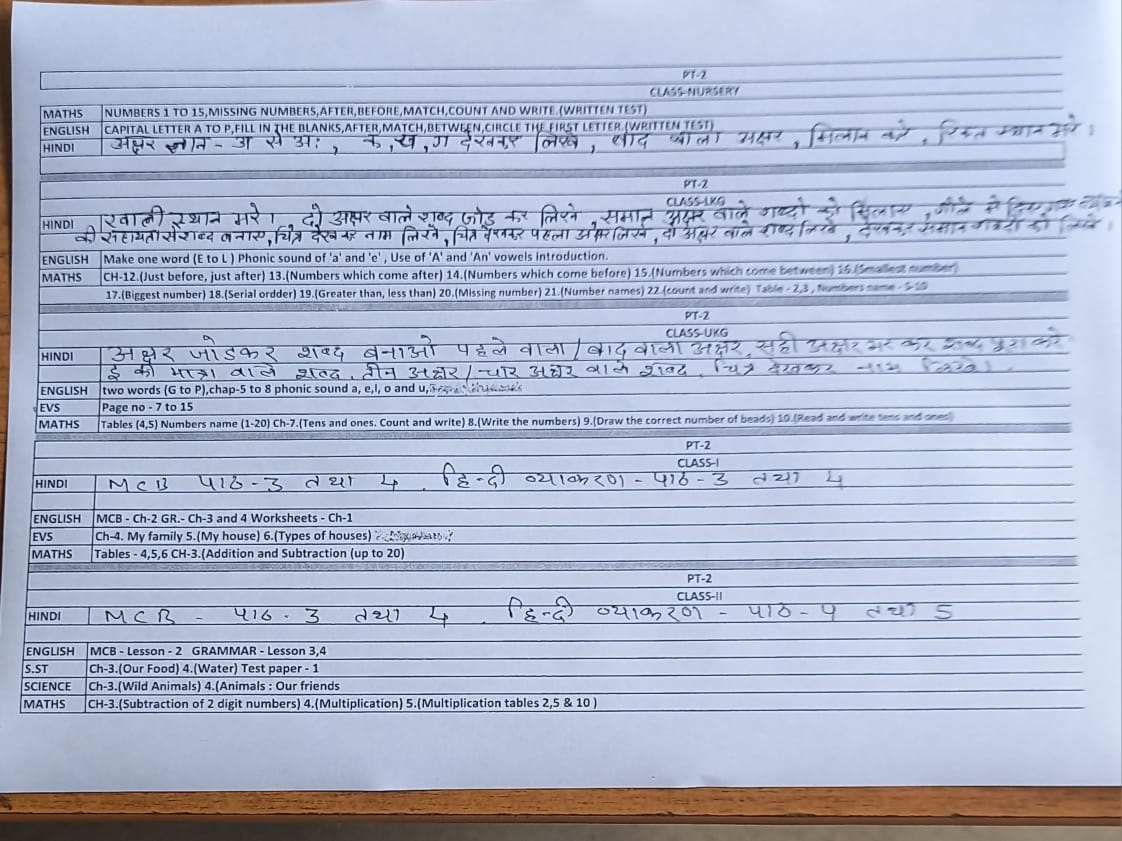 PT-2
CLASS-NURSERY
MATHS NUMBERS 1 TO 15,MISSING NUMBERS,AFTER,BEFORE,MATCH,COUNT AND WRITE.(WRITTEN TEST)
ENGLISH CAPITAL LETTER A TO P,FILL IN THE BLANKS,AFTER,MATCH,BETWEEN,CIRCLE THE FIRST LETTER.(WRITTEN TEST)
HINDI अक्षर ज्ञान - अ से अः, क, ख, ग देखकर लिखे, बाद वाला अक्षर, मिलान करे, रिक्त स्थान भरे।
PT-2
CLASS-LKG
HINDI खाली स्थान भरे। दो अक्षर वाले शब्द जोड़ कर लिखे, समान अक्षर वाले शब्दो को मिलाए, नीले में दिए गए
की सहायता से शब्द बनाए, चित्र देखकर नाम लिखे, चित्र देखकर पहला अक्षर लिखे, दो अक्षर वाले शब्द लिखे, देखकर समान शब्दो को लिखे।
ENGLISH Make one word (E to L) Phonic sound of 'a' and 'e' , Use of 'A' and 'An' vowels introduction.
MATHS CH-12.(Just before, just after) 13.(Numbers which come after) 14.(Numbers which come before) 15.(Numbers which come between) 16.(Smallest number)
17.(Biggest number) 18.(Serial ordder) 19.(Greater than, less than) 20.(Missing number) 21.(Number names) 22.(count and write) Table - 2,3 , Numbers name - 5-10
PT-2
CLASS-UKG
HINDI अक्षर जोडकर शब्द बनाओ पहले वाला / बाद वाला अक्षर, सही अक्षर भर कर शब्द पूरा करे
ई की मात्रा वाले शब्द, तीन अक्षर / चार अक्षर वाले शब्द, चित्र देखकर नाम लिखे।
ENGLISH two words (G to P),chap-5 to 8 phonic sound a, e,I, o and u,
EVS Page no - 7 to 15
MATHS Tables (4,5) Numbers name (1-20) Ch-7.(Tens and ones. Count and write) 8.(Write the numbers) 9.(Draw the correct number of beads) 10.(Read and write tens and ones)
PT-2
CLASS-I
HINDI MCB पाठ-3 तथा 4. हिन्दी व्याकरण - पाठ-3 तथा 4
ENGLISH MCB - Ch-2 GR.- Ch-3 and 4 Worksheets - Ch-1
EVS Ch-4. My family 5.(My house) 6.(Types of houses)
MATHS Tables - 4,5,6 CH-3.(Addition and Subtraction (up to 20)
PT-2
CLASS-II
HINDI MCB - पाठ - 3 तथा 4. हिन्दी व्याकरण - पाठ-4 तथा 5
ENGLISH MCB - Lesson - 2 GRAMMAR - Lesson 3,4
S.ST Ch-3.(Our Food) 4.(Water) Test paper - 1
SCIENCE Ch-3.(Wild Animals) 4.(Animals : Our friends
MATHS CH-3.(Subtraction of 2 digit numbers) 4.(Multiplication) 5.(Multiplication tables 2,5 & 10 )